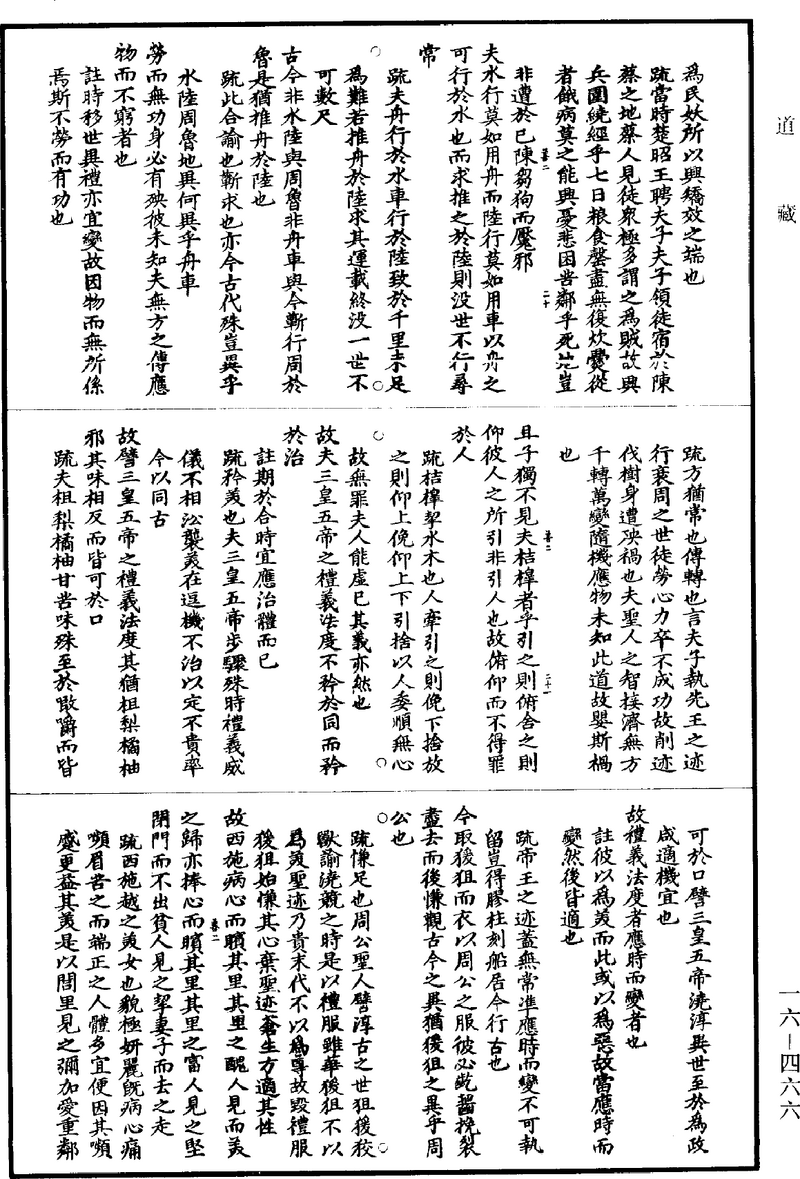 道藏
為民妖所以興矯效之端也
疏當時楚昭王聘夫子夫子領徒宿於陳
蔡之地蔡人見徒衆極多謂之為賊故興
兵圍繞經乎七日粮食罄盡無復炊爨從
者餓病莫之能興憂悲困苦鄰乎死地豈
非遭於已陳芻狗而魘邪
夫水行莫如用舟而陸行莫如用車以舟之
可行於水也而求推之於陸則没世不行尋
常
疏夫舟行於水車行於陸致於千里未足
為難若推舟於陸求其運載終没一世不
可數尺
古今非水陸與周魯非舟車與今蘄行周於
魯是猶推舟於陸也
疏此合諭也蘄求也亦今古代殊豈異乎
水陸周魯地異何異乎舟車
勞而無功身必有殃彼未知夫無方之傳應
物而不窮者也
註時移世異禮亦宜變故因物而無所係
焉斯不勞而有功也
疏方猶常也傳轉也言夫子執先王之迹
行衰周之世徒勞心力卒不成功故削迹
伐樹身遭殃禍也夫聖人之智接濟無方
千轉萬變隨機應物未知此道故嬰斯禍
也
且子獨不見夫桔橰者乎引之則俯舍之則
仰彼人之所引非引人也故俯仰而不得罪
於人
疏桔橰挈水木也人牽引之則俛下捨放
之則仰上俛仰上下引捨以人委順無心
故無罪夫人能虚已其義亦然也
故夫三皇五帝之禮義法度不矜於同而矜
於治
註期於合時宜應治體而已
疏矜美也夫三皇五帝步驟殊時禮義威
儀不相沿襲美在逗機不治以定不貴率
今以同古
故譬三皇五帝之禮義法度其猶柤梨橘柚
邪其味相反而皆可於口
疏夫柤梨橘柚甘苦味殊至於噉嚼而皆
可於口譬三皇五帝澆淳異世至於為政
咸適機宜也
故禮義法度者應時而變者也
註彼以為美而此或以為惡故當應時而
變然後皆適也
疏帝王之迹蓋無常準應時而變不可執
留豈得膠柱刻船居今行古也
今取猨狙而衣以周公之服彼必齕齧挽裂
盡去而後慊觀古今之異猶猨狙之異乎周
公也
疏慊足也周公聖人譬淳古之世狙猨狡
獸諭澆競之時是以禮服雖華猨狙不以
為美聖迹乃貴末代不以為尊故毀禮服
猨狙始慊其心棄聖迹蒼生方適其性
故西施病心而矉其里其里之醜人見而美
之歸亦捧心而矉其里其里之富人見之堅
閉門而不出貧人見之挈妻子而去之走
疏西施越之美女也貌極妍麗既病心痛
嚬眉苦之而端正之人體多宜便因其嚬
蹙更益其美是以閭里見之彌加愛重鄰
一六－四六六